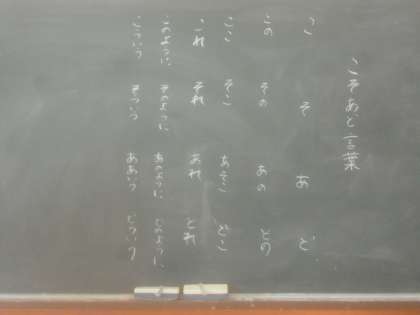 こそあど言葉
こ そ あ ど
この その あの どの
ここ そこ あそこ どこ
これ それ あれ どれ
このように、 そのように、 あのように、 どのように、
こういう そういう ああいう どういう